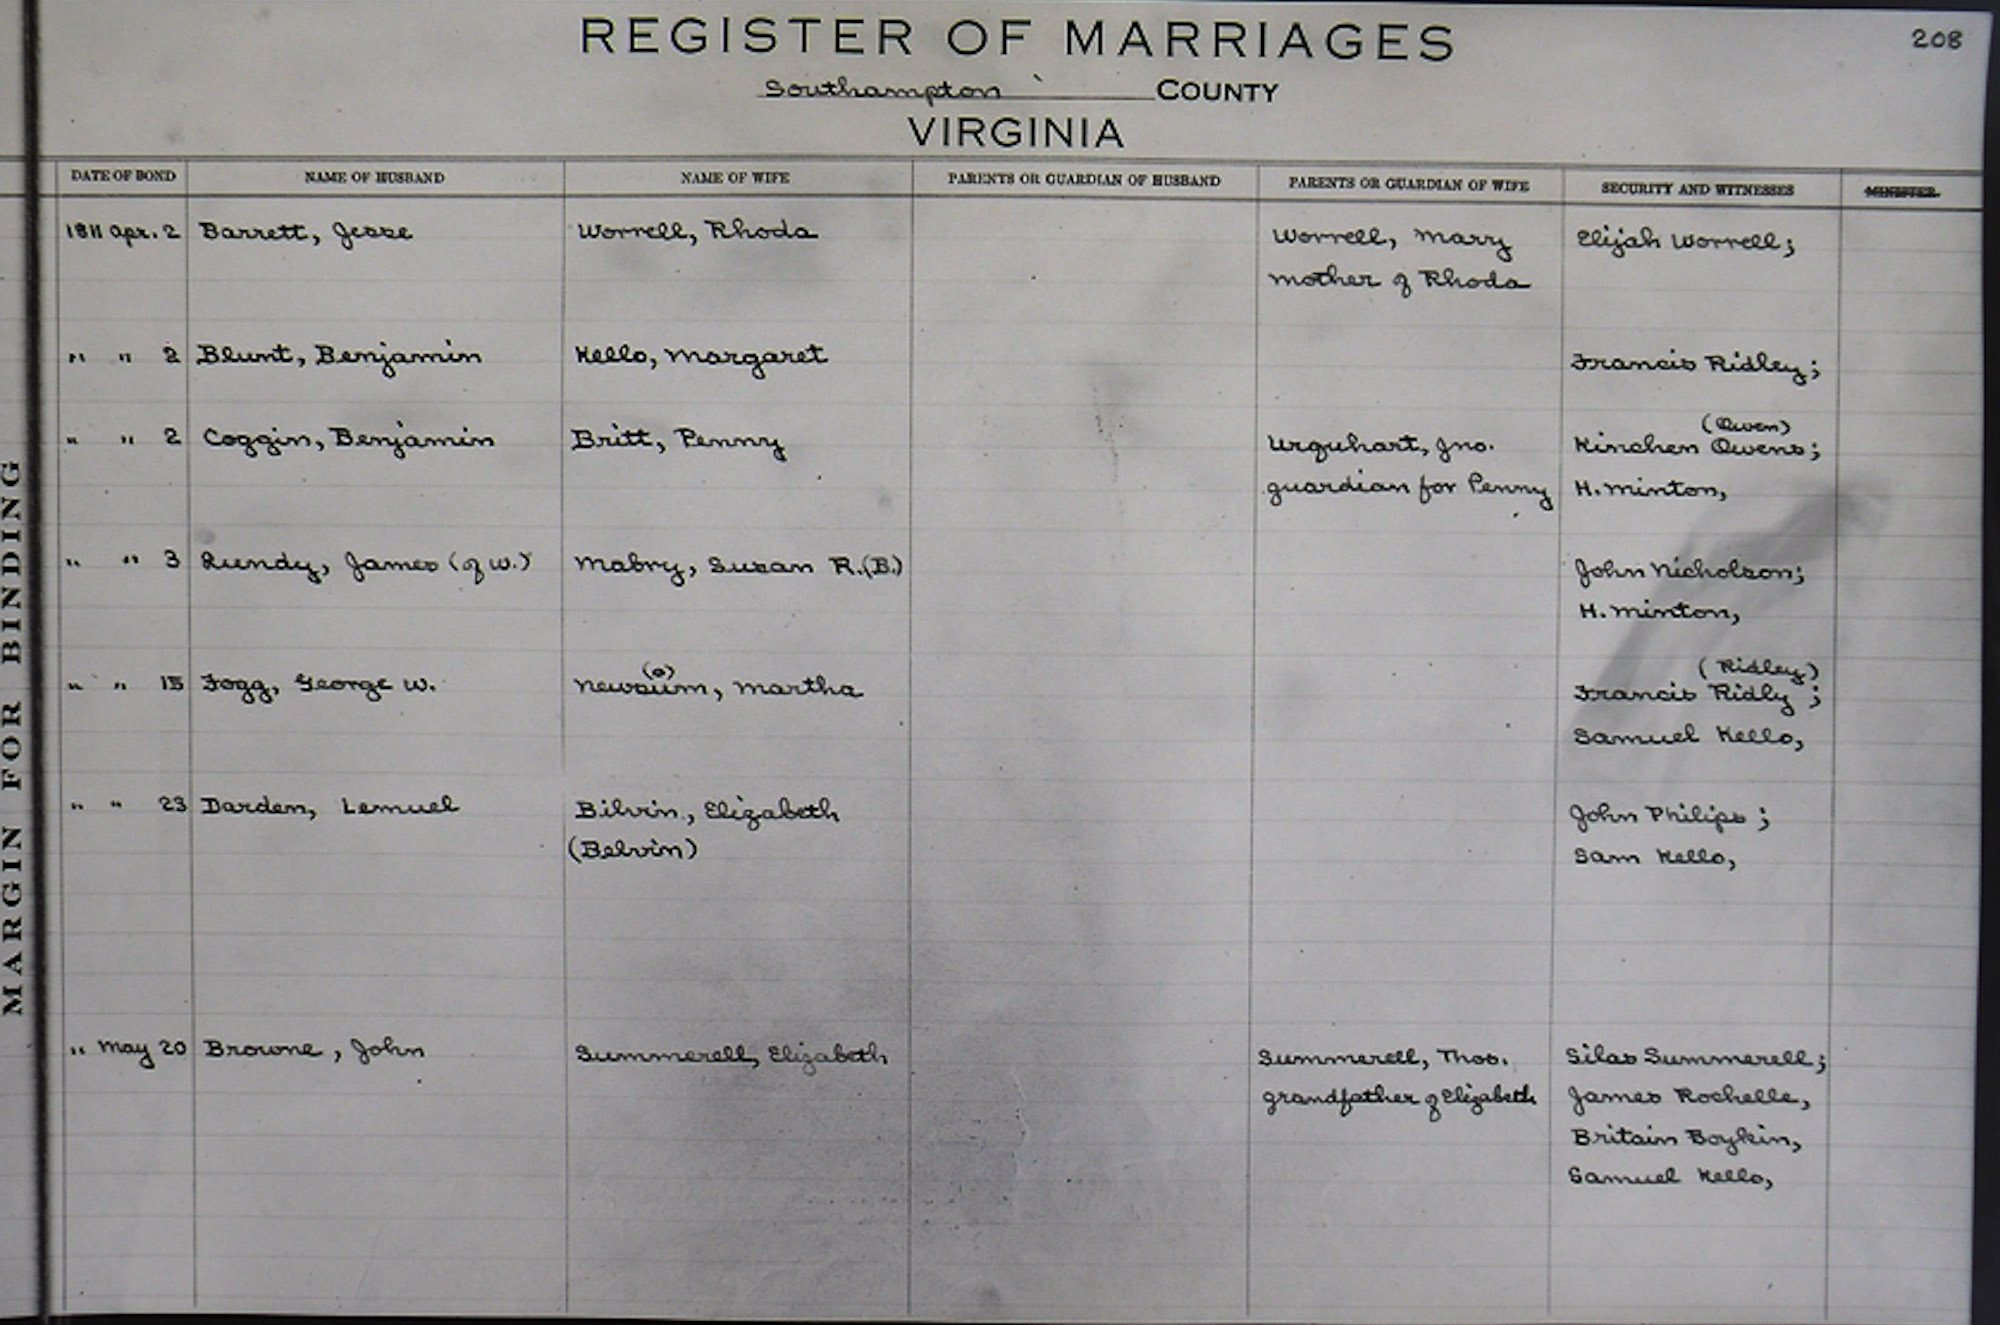 REGISTER OF MARRIAGES
208
Southampton COUNTY
VIRGINIA
MARGIN FOR BINDING
DATE OF BOND NAME OF HUSBAND NAME OF WIFE PARENTS OR GUARDIAN OF HUSBAND PARENTS OR GUARDIAN OF WIFE SECURITY AND WITNESSES MINISTER
1811 Apr. 2 Barrett, Jesse Worrell, Rhoda Worrell, Mary Elijah Worrell;
mother of Rhoda
" " 2 Blunt, Benjamin Kello, Margaret Francis Ridley;
(Owen)
" " 2 Coggin, Benjamin Britt, Penny Urquhart, Jno. Kinchen Owens;
guardian for Penny H. Minton,
" " 3 Lundy, James (of W.) Mabry, Susan R.(B.) John Nicholson;
H. Minton,
(o) (Ridley)
" " 15 Fogg, George W. Newsum, Martha Francis Ridly;
Samuel Kello,
" " 23 Darden, Lemuel Bilvin, Elizabeth John Philips;
(Belvin) Sam Kello,
" May 20 Browne, John Summerell, Elizabeth Summerell, Thos. Silas Summerell;
grandfather of Elizabeth James Rochelle,
Britain Boykin,
Samuel Kello,